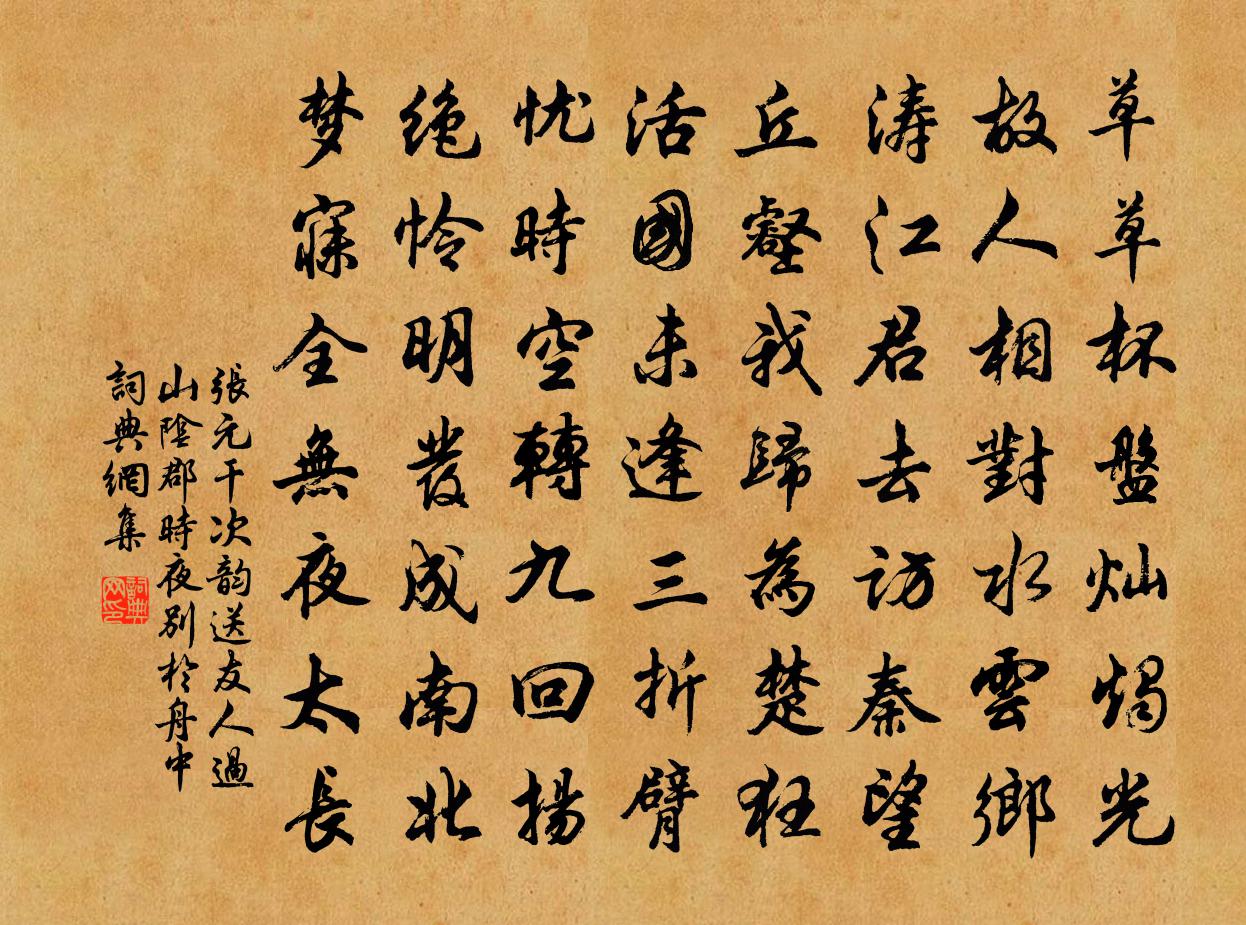 草草杯盤灿燭光
故人相對水雲鄉
涛江君去访秦望
丘壑我歸為楚狂
活國未逢三折臂
忧時空轉九回揚
绝怜明發成南北
梦寐全無夜太長
張元干次韵送友人過
山陰郡時夜别於舟中
詞典網集
詞典
网印